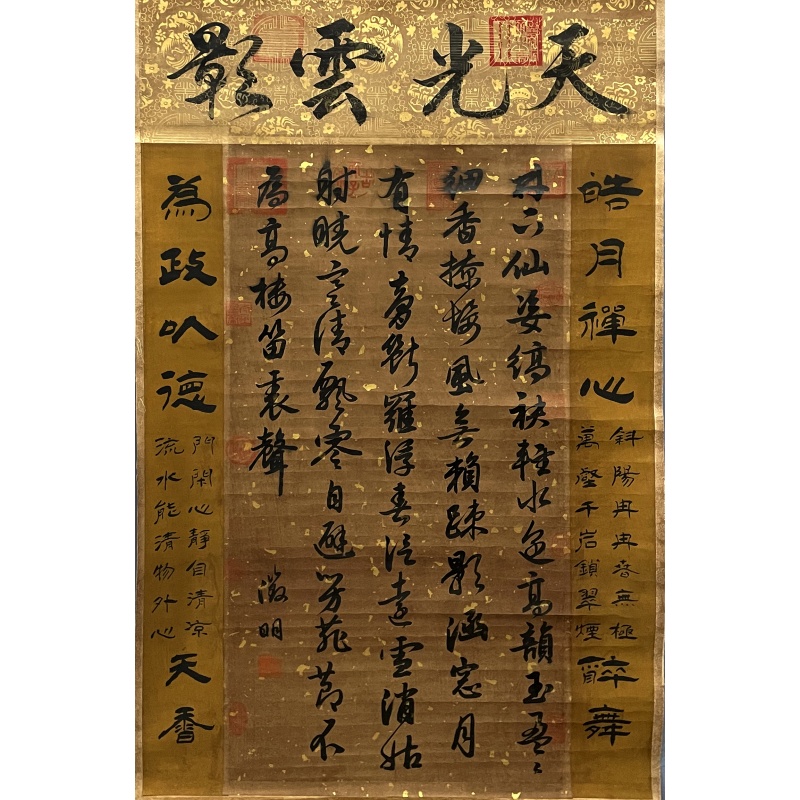 天光雲影
皓月禪心
斜陽冉冉春無極
萬壑千岩鎖翠煙
醉舞
林下仙姿縞袂輕水邊高韻玉盈盈
細香撩鬢風無賴疎影涵窓月
有情夢斷羅浮春信遠雪消姑
射曉寒清飄零自避芳菲節不
為高樓笛裏聲
徵明
為政以德
門閑心靜自清凉
流水能清物外心
天香